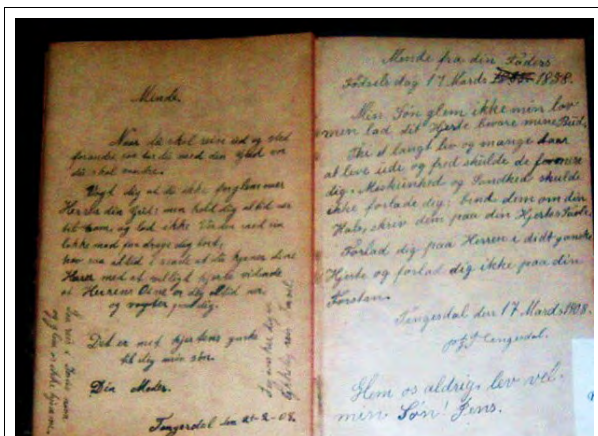 Minde.
Naar du skal reise ud og
du skal vandre.
Vogt dig at du ikke forglemmer
Herren din Gud; men hold dig altid nær
til ham, og lad ikke Verden med sin
lokke mad faa drage dig bort;
at du tjener dine
Herrer med et villigt hjerte vidende
at Herrens Øine er dig altid nær
og vogter paa dig.
Det er med hjertens ynske
til dig min søn.
Din Moder.
Tengesdal den 21-2-08.
Minde fra din Faders
Fødselsdag 17 Marts 1838.
Min Søn glem ikke min lov
men lad dit Hjerte bevare mine Bud,
Thi et langt liv og mange aar
at leve ude og fred skulde de formere
dig. Miskundhed og Sandhed skulde
ikke forlade dig; bind dem om din
Hals, skriv dem paa din Hjertes Tavle.
Forlad dig paa Herren i didt ganske
Hjerte og forlad dig ikke paa din
Forstan.
Tengesdal den 17 Marts 1908.
Tengesdal.
Glem os aldrig, lev vel.
min Søn! Jens.